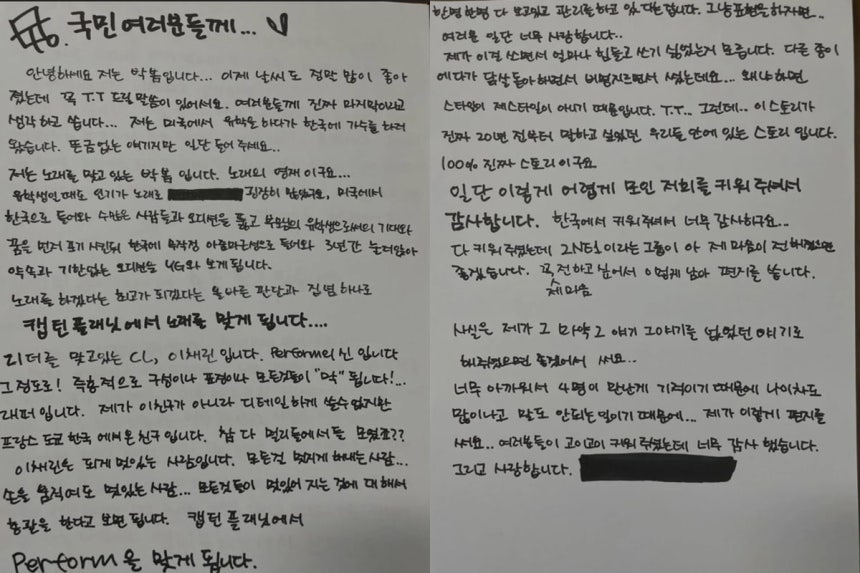 국민 여러분들께...
안녕하세요 저는 박봄입니다... 이제 날씨도 정말 많이 좋아
졌는데 꼭 T.T 드릴 말씀이 있어서요. 여러분들께 진짜 마지막이라고
생각하고 씁니다... 저는 미국에서 유학을 하다가 한국에 가수를 하러
왔습니다. 뜬금없는 얘기지만 일단 들어주세요..
저는 노래를 맡고 있는 박봄 입니다. 노래의 영재이구요...
유학생인때도 인기가 노래로 굉장히 많았구요, 미국에서
한국으로 들어와 수많은 사람들과 오디션을 뚫고 부모님의 유학생으로써의 기대와
꿈을 먼저 포기 시킨뒤 한국에 무작정 들어와 3년간 눌러앉아
약속과 기한없는 오디션을 YG와 보게 됩니다.
노래를 하겠다는 최고가 되겠다는 올바른 판단과 집념 하나로
캡틴 플래닛에서 노래를 맡게 됩니다....
리더를 맡고있는 CL, 이채린 입니다. Perform의 신 입니다
그정도로! 즉흥적으로 구성이나 표정이나 모든것들이 "먹"됩니다!...
래퍼 입니다. 제가 이친구가 아니라 디테일하게 쓸수 없지만
프랑스 도쿄 한국 에서온 친구 입니다. 참 다 멀리들에서들 모였죠??
이채린은 되게 멋있는 사람입니다. 모든걸 멋지게 해내는 사람...
손을 움직여도 멋있는 사람... 모든것들이 멋있어 지는 것에 대해서
총괄을 한다고 보면 됩니다. 캡틴 플래닛에서
Perform을 맡게 됩니다.
한명한명 다 보고있고 관리를 하고 있다는 겁니다. 그냥 표현을 하자면..
여러분 일단 너무 사랑합니다..
제가 이걸 쓰면서 얼마나 힘들고 쓰기 싫었는지 모릅니다. 다른 종이
에다가 하면서 썼는데요... 왜냐하면
스타일이 제스타일이 아니기 때문입니다. T.T... 그런데.. 이 스토리가
진짜 20년 전부터 말하고 싶었던 우리들 안에 있는 스토리 입니다.
100% 진짜 스토리이구요
일단 이렇게 어렵게 모인 저희를 키워 주셔서
감사합니다. 한국에서 키워주셔서 너무 감사하구요...
다 키워 주셨는데 2NE1 이라는 그룹이 아 제 마음이 전해졌으면
좋겠습니다. 꼭 전하고 싶어서 이렇게 남아 편지를 씁니다.
제마음
사실은 제가 그 마약 그 얘기 그얘기를 없었던 얘기로
해주셨으면 좋겠어서 써요..
너무 아까워서 4명이 만난게 기적이기 때문에 나이차도
많이나고 말도 안되는 일이기 때문에... 제가 이렇게 편지를
써요.. 여러분들이 고이고이 키워 주셨는데 너무 감사 했습니다.
그리고 사랑합니다.